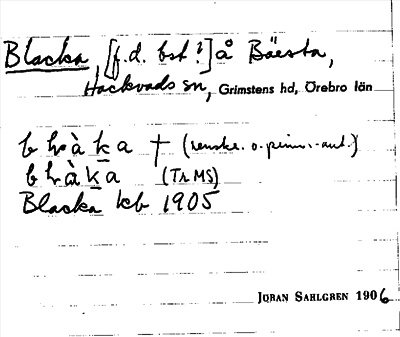 Blacka, [f.d. bst?] å Bäesta,
Hackvads sn, Grimstens hd, Örebro län
bla̱ka † (renskr. o. prim.-ant.)
(Tr MS)
Blacka kb 1905
JÖRAN SAHLGREN 1906